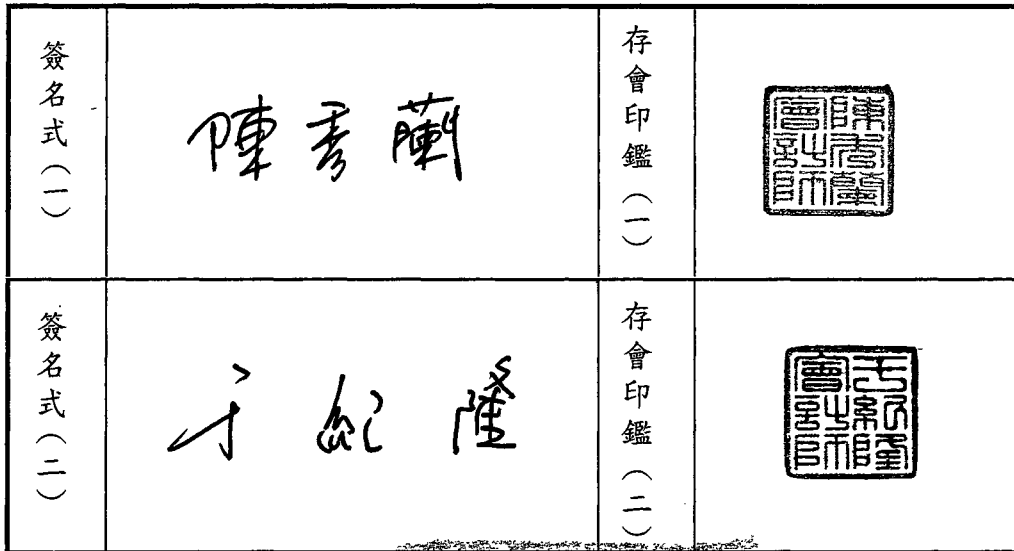 簽名式（一）
陳秀蘭
存會印鑑（一）
陳秀蘭會計師
簽名式（二）
于紀隆
存會印鑑（二）
于紀隆會計師